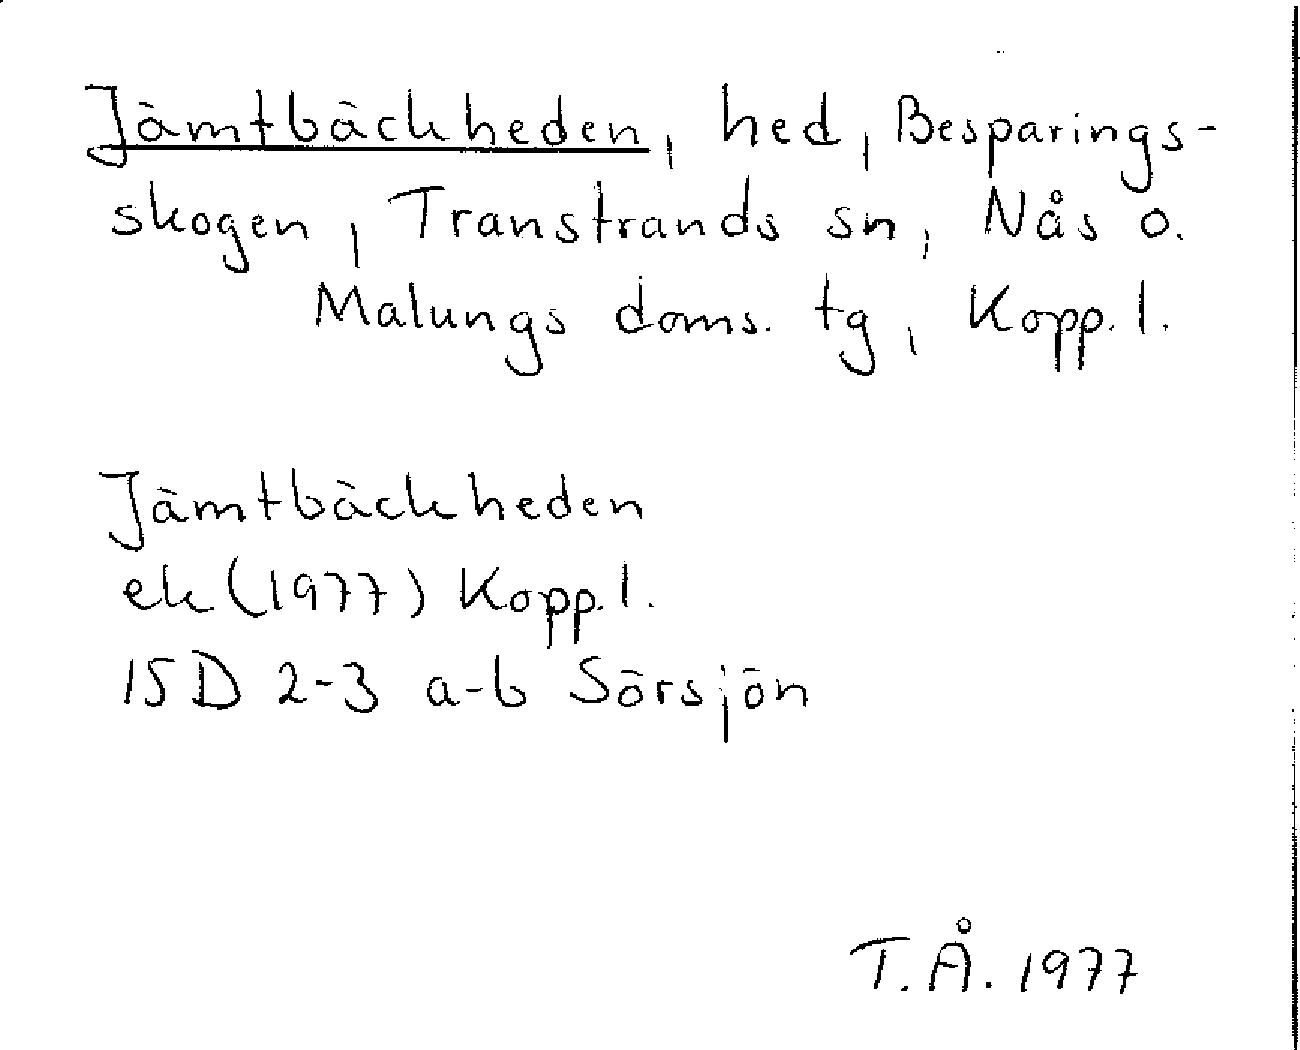 Jämtbäckheden, hed, Besparings-
skogen, Transtrands sn, Nås o.
Malungs doms. tg, Kopp. l.
Jämtbäckheden
ek (1977) Kopp. l.
15D 2-3 a-b Sörsjön
T.Å. 1977